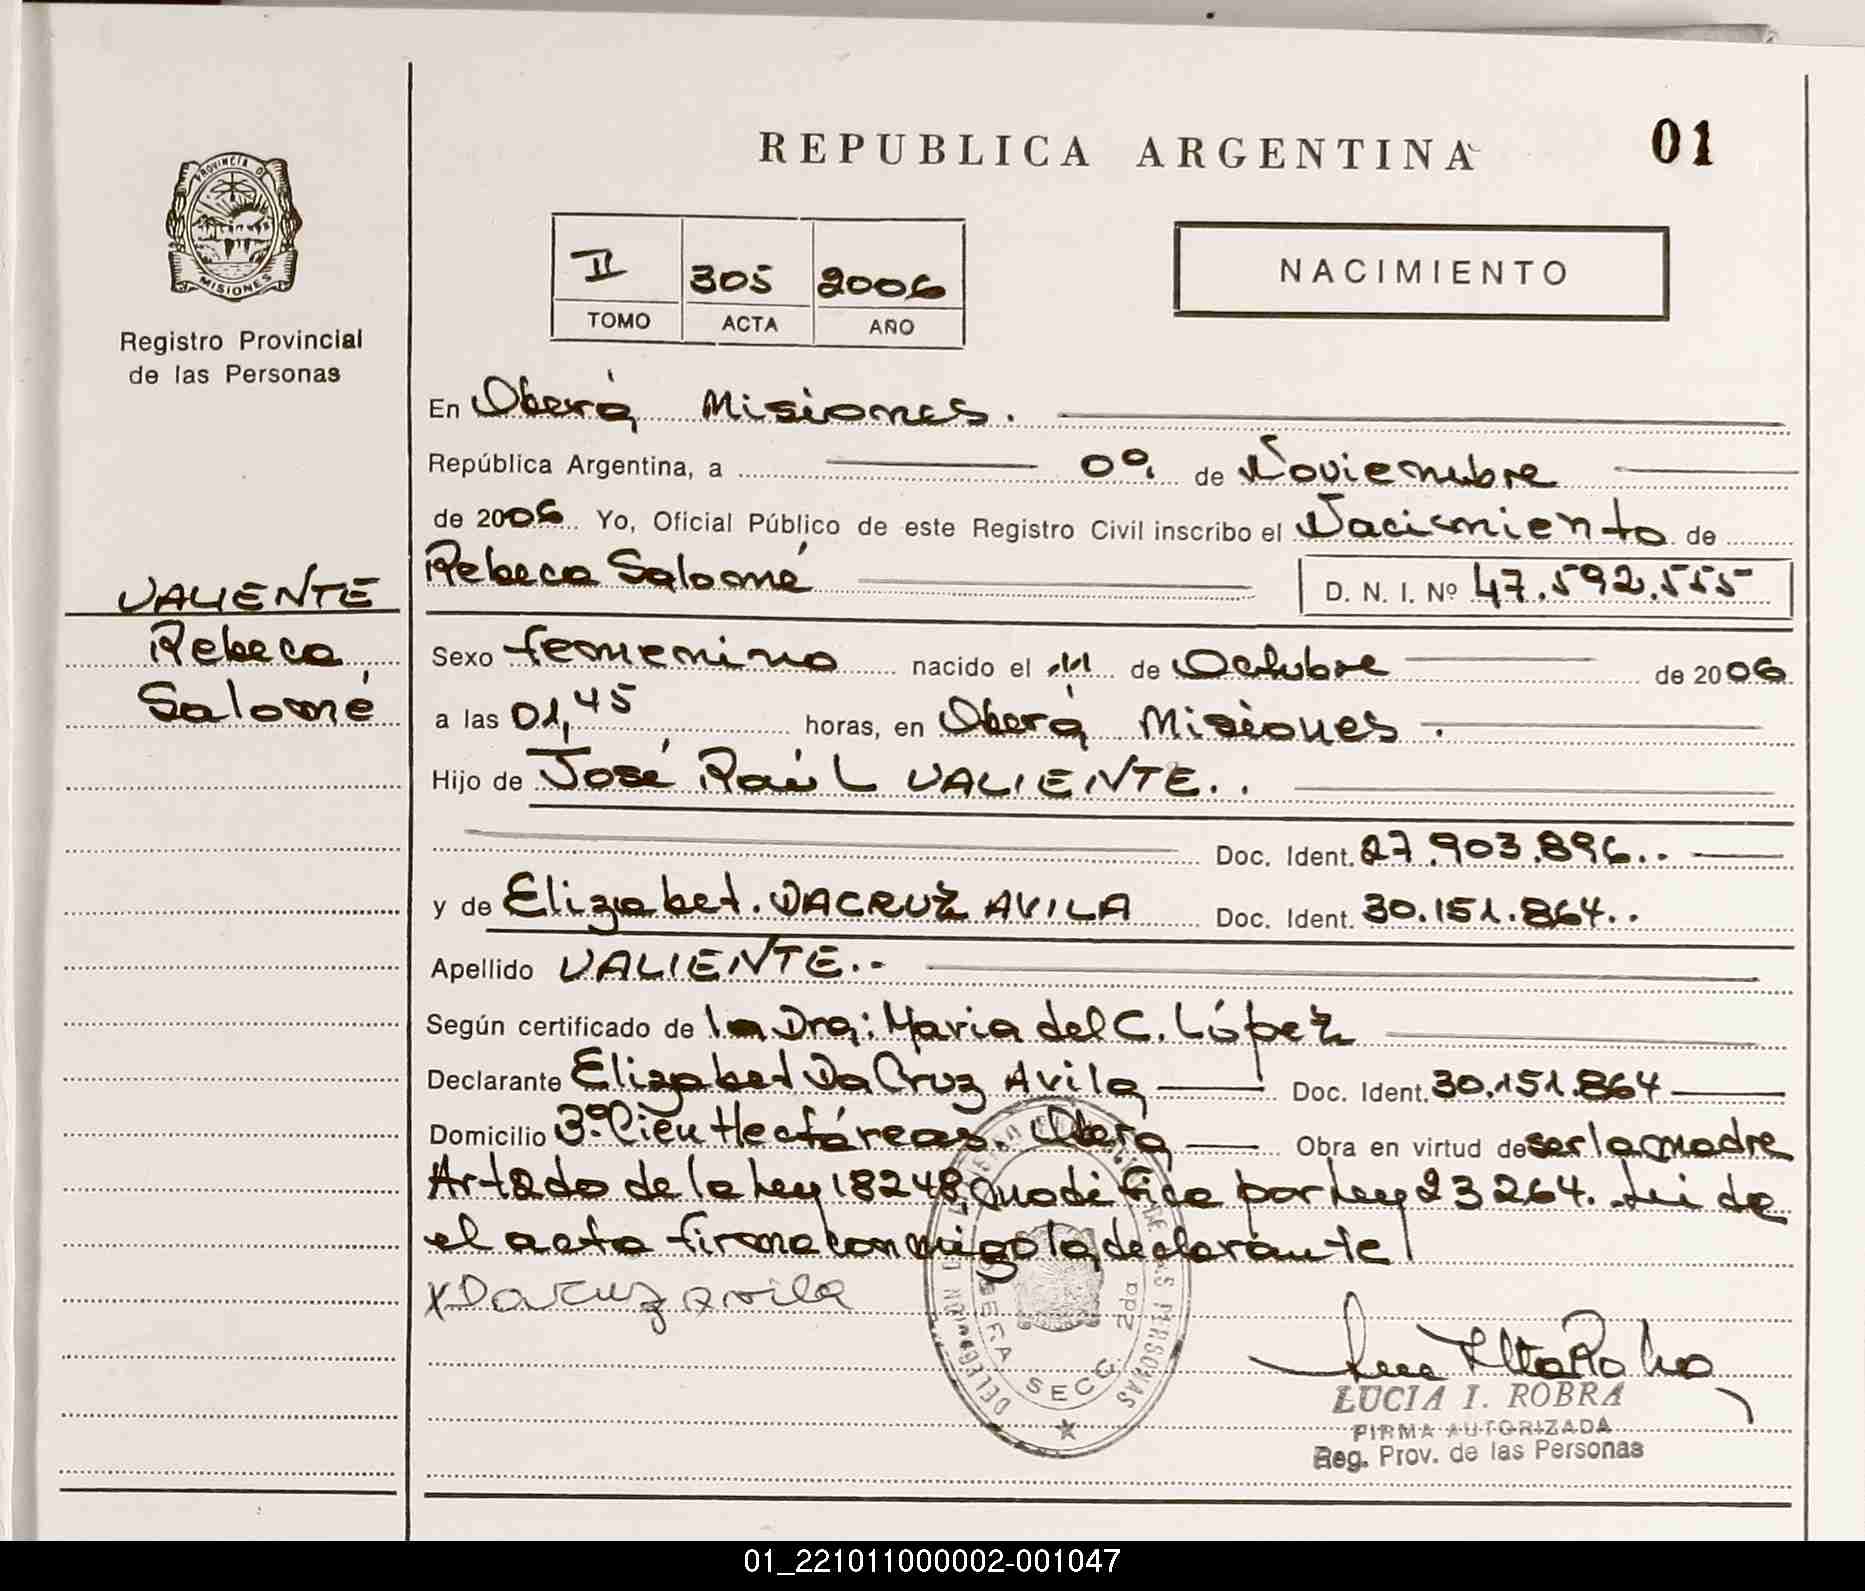 REPUBLICA ARGENTINA
01
PROVINCIA DE
MISIONES
Registro Provincial
de las Personas
II 305 2006
TOMO ACTA AÑO
NACIMIENTO
En Oberá Misiones.
República Argentina, a de Noviembre
de 2006 Yo, Oficial Público de este Registro Civil inscribo el Nacimiento de
Rebeca Salomé D. N. I. Nº 47.592.555
VALIENTE
Rebeca
Salomé
Sexo femenino nacido el 11 de Octubre de 2006
a las 01,45 horas, en Oberá Misiones.
Hijo de José Raúl VALIENTE..
Doc. Ident. 27.903.896..
y de Elizabet. DACRUZ AVILA Doc. Ident. 30.151.864..
Apellido VALIENTE.-
Según certificado de la Dra: Maria del C. López
Declarante Elizabet Da Cruz Avila Doc. Ident. 30.151.864
Domicilio 3º Cien Hectáreas. Oberá Obra en virtud de ser la madre
Art 2do de la Ley 18248, modifica por Ley 23264. Lei de
el acta firma conmigo la declarante
x Dacruz avila
LUCIA I. ROBRA
FIRMA AUTORIZADA
Reg. Prov. de las Personas
OBERA SECC. 2da
01_221011000002-001047